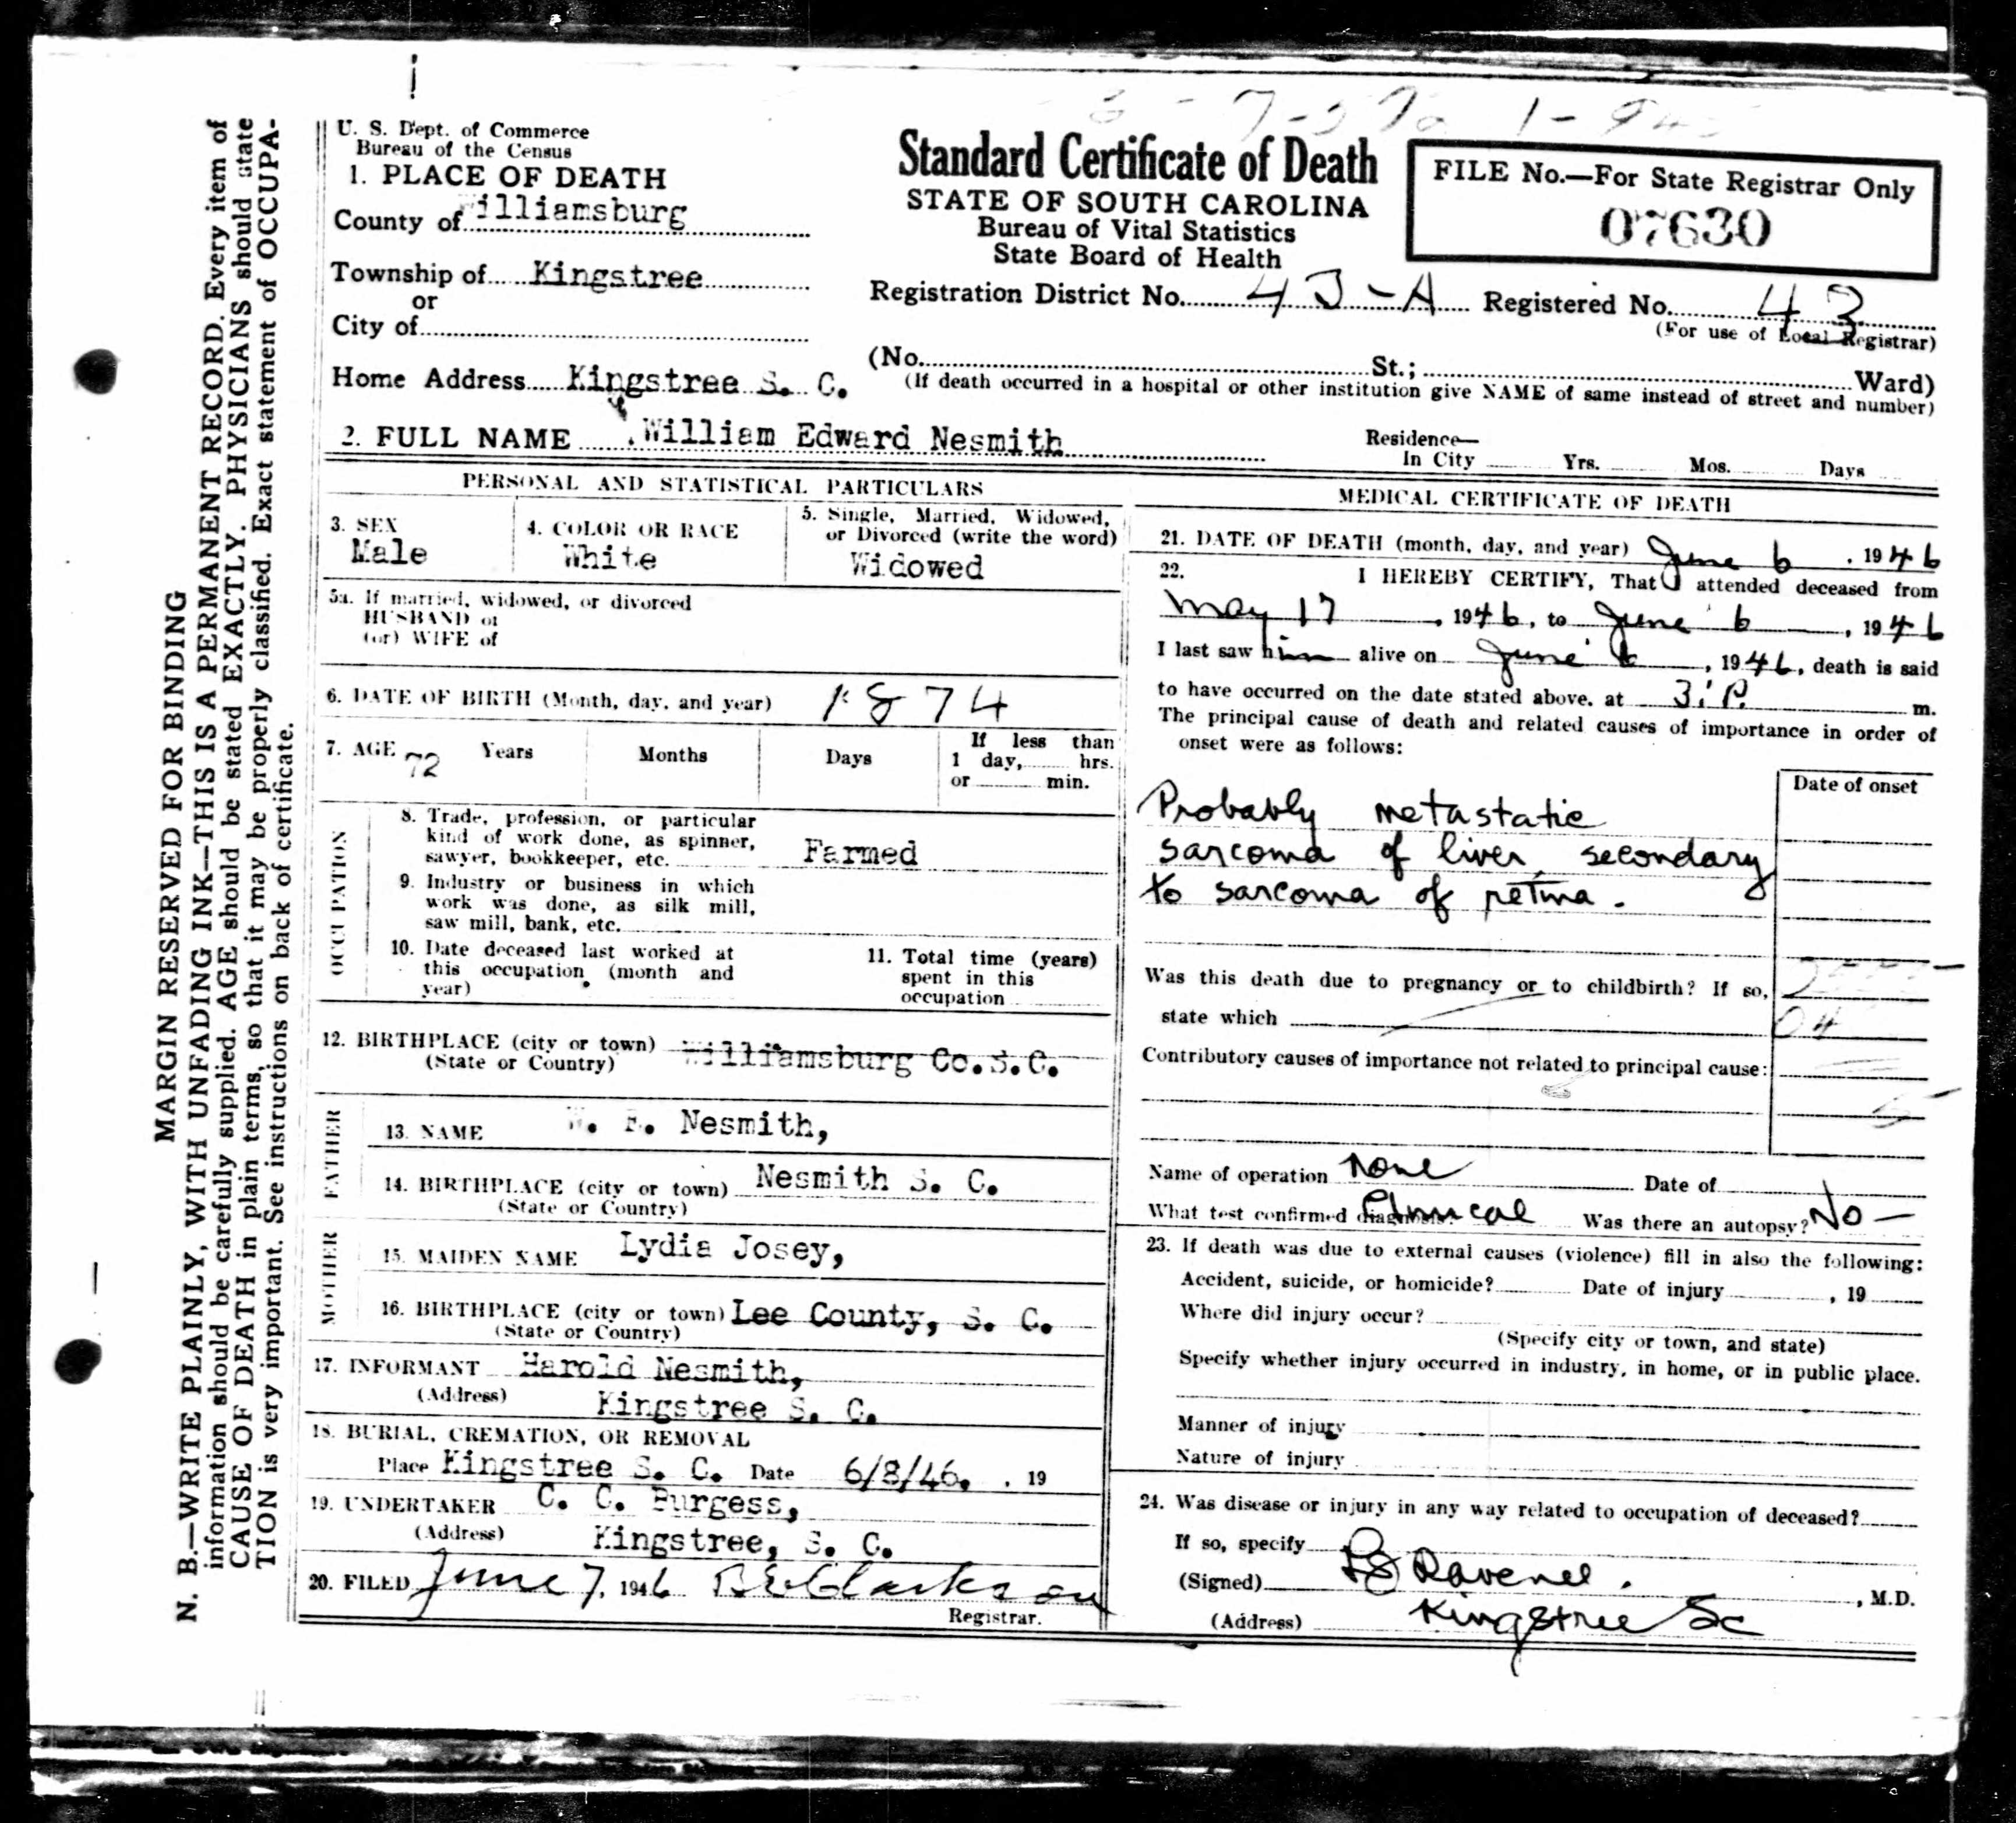 U. S. Dept. of Commerce
Bureau of the Census
1. PLACE OF DEATH
County of Williamsburg
Township of Kingstree
or
City of
Home Address Kingstree S. C.
Standard Certificate of Death
STATE OF SOUTH CAROLINA
Bureau of Vital Statistics
State Board of Health
FILE No.—For State Registrar Only
07630
Registration District No. 43-A Registered No. 43
(For use of Local Registrar)
(No. St.; Ward)
(If death occurred in a hospital or other institution give NAME of same instead of street and number)
2. FULL NAME William Edward Nesmith
Residence—
In City Yrs. Mos. Days
PERSONAL AND STATISTICAL PARTICULARS
3. SEX
Male
4. COLOR OR RACE
White
5. Single, Married, Widowed,
or Divorced (write the word)
Widowed
5a. If married, widowed, or divorced
HUSBAND of
(or) WIFE of
6. DATE OF BIRTH (Month, day, and year) 1874
7. AGE 72 Years Months Days
If less than
1 day, hrs.
or min.
OCCUPATION
8. Trade, profession, or particular
kind of work done, as spinner,
sawyer, bookkeeper, etc. Farmed
9. Industry or business in which
work was done, as silk mill,
saw mill, bank, etc.
10. Date deceased last worked at
this occupation (month and
year)
11. Total time (years)
spent in this
occupation
12. BIRTHPLACE (city or town) Williamsburg Co. S. C.
(State or Country)
FATHER
13. NAME W. E. Nesmith,
14. BIRTHPLACE (city or town) Nesmith S. C.
(State or Country)
MOTHER
15. MAIDEN NAME Lydia Josey,
16. BIRTHPLACE (city or town) Lee County, S. C.
(State or Country)
17. INFORMANT Harold Nesmith,
(Address) Kingstree S. C.
18. BURIAL, CREMATION, OR REMOVAL
Place Kingstree S. C. Date 6/8/46. , 19
19. UNDERTAKER C. C. Burgess,
(Address) Kingstree, S. C.
20. FILED June 7, 1946 Clarkson
Registrar.
MEDICAL CERTIFICATE OF DEATH
21. DATE OF DEATH (month, day, and year) June 6, 1946
22. I HEREBY CERTIFY, That I attended deceased from
May 17, 1946, to June 6, 1946
I last saw him alive on June 6, 1946, death is said
to have occurred on the date stated above, at 3:P. m.
The principal cause of death and related causes of importance in order of
onset were as follows:
Date of onset
Probably metastatic
sarcoma of liver secondary
to sarcoma of retina.
Was this death due to pregnancy or to childbirth? If so,
state which
04
Contributory causes of importance not related to principal cause:
Name of operation None Date of
What test confirmed diagnosis? Clinical Was there an autopsy? No —
23. If death was due to external causes (violence) fill in also the following:
Accident, suicide, or homicide? Date of injury , 19
Where did injury occur?
(Specify city or town, and state)
Specify whether injury occurred in industry, in home, or in public place.
Manner of injury
Nature of injury
24. Was disease or injury in any way related to occupation of deceased?
If so, specify
(Signed) Ravenel. , M.D.
(Address) Kingstree SC
MARGIN RESERVED FOR BINDING
N. B.—WRITE PLAINLY, WITH UNFADING INK—THIS IS A PERMANENT RECORD. Every item of
information should be carefully supplied. AGE should be stated EXACTLY. PHYSICIANS should state
CAUSE OF DEATH in plain terms, so that it may be properly classified. Exact statement of OCCUPA-
TION is very important. See instructions on back of certificate.